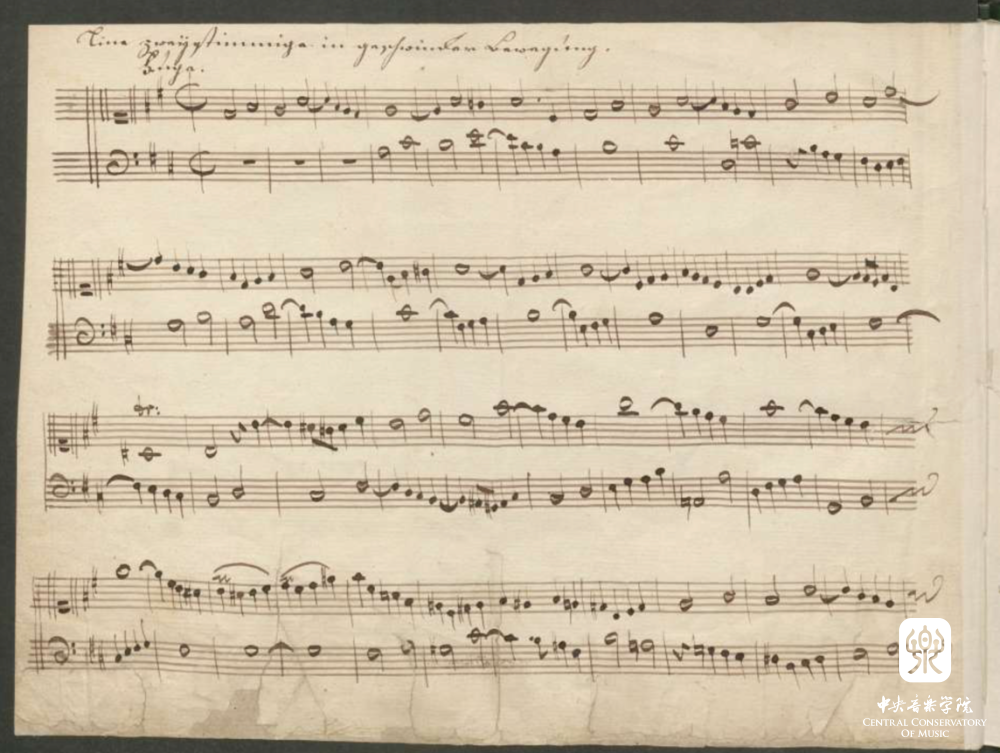 Eine zweystimmige in geschwinder Bewegung.
Fuge.
tr:
中央音乐学院
CENTRAL CONSERVATORY
OF MUSIC